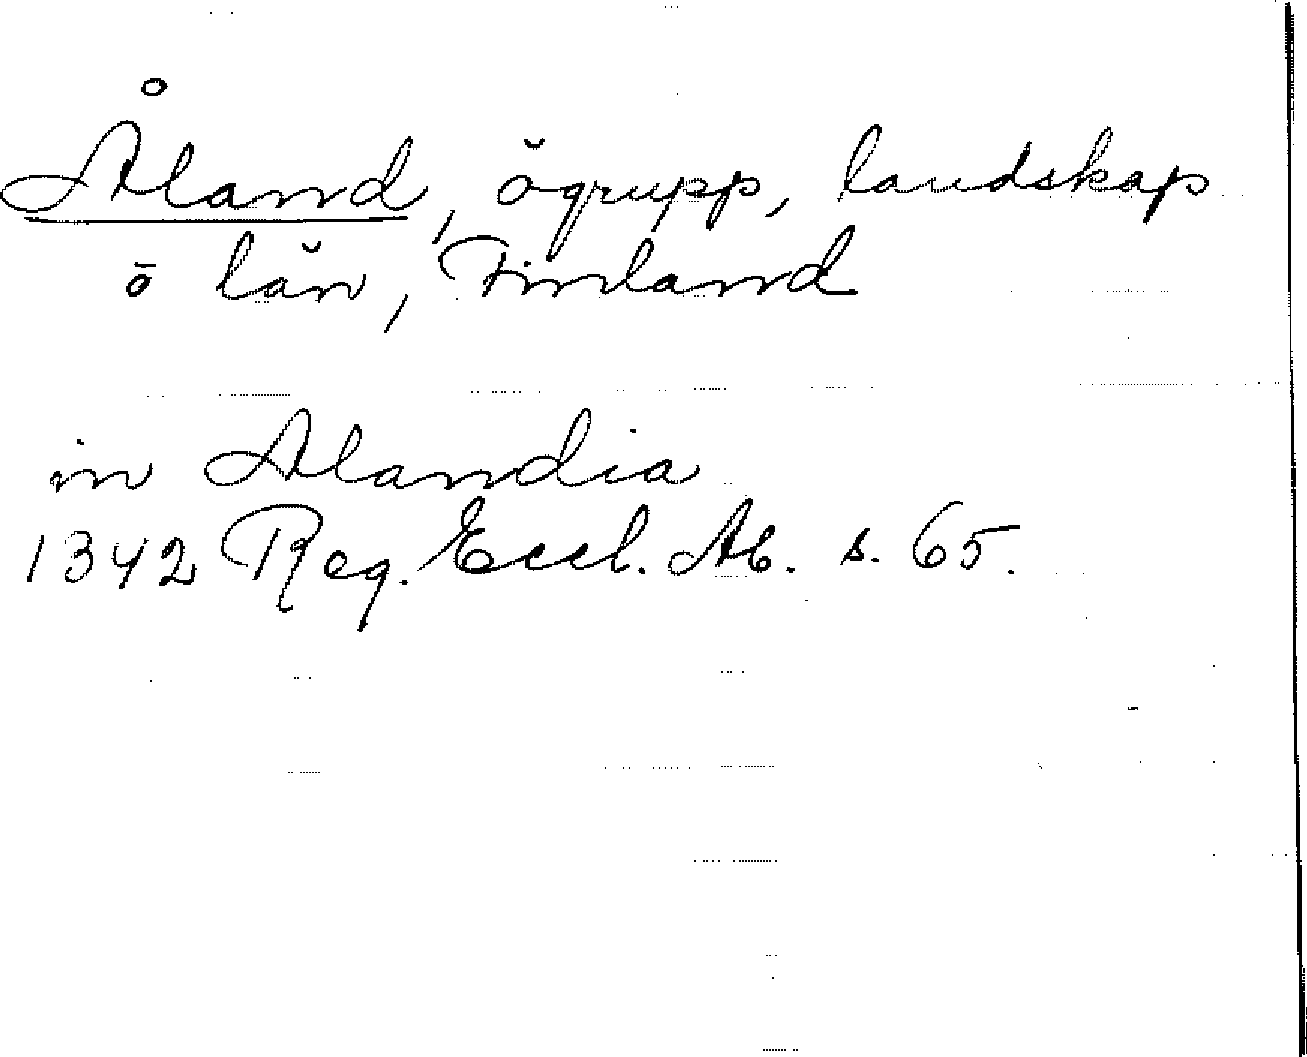 Åland, ögrupp, landskap
o län, Finland
in Alandia
1342 Reg. Eccl. Ab. s. 65.